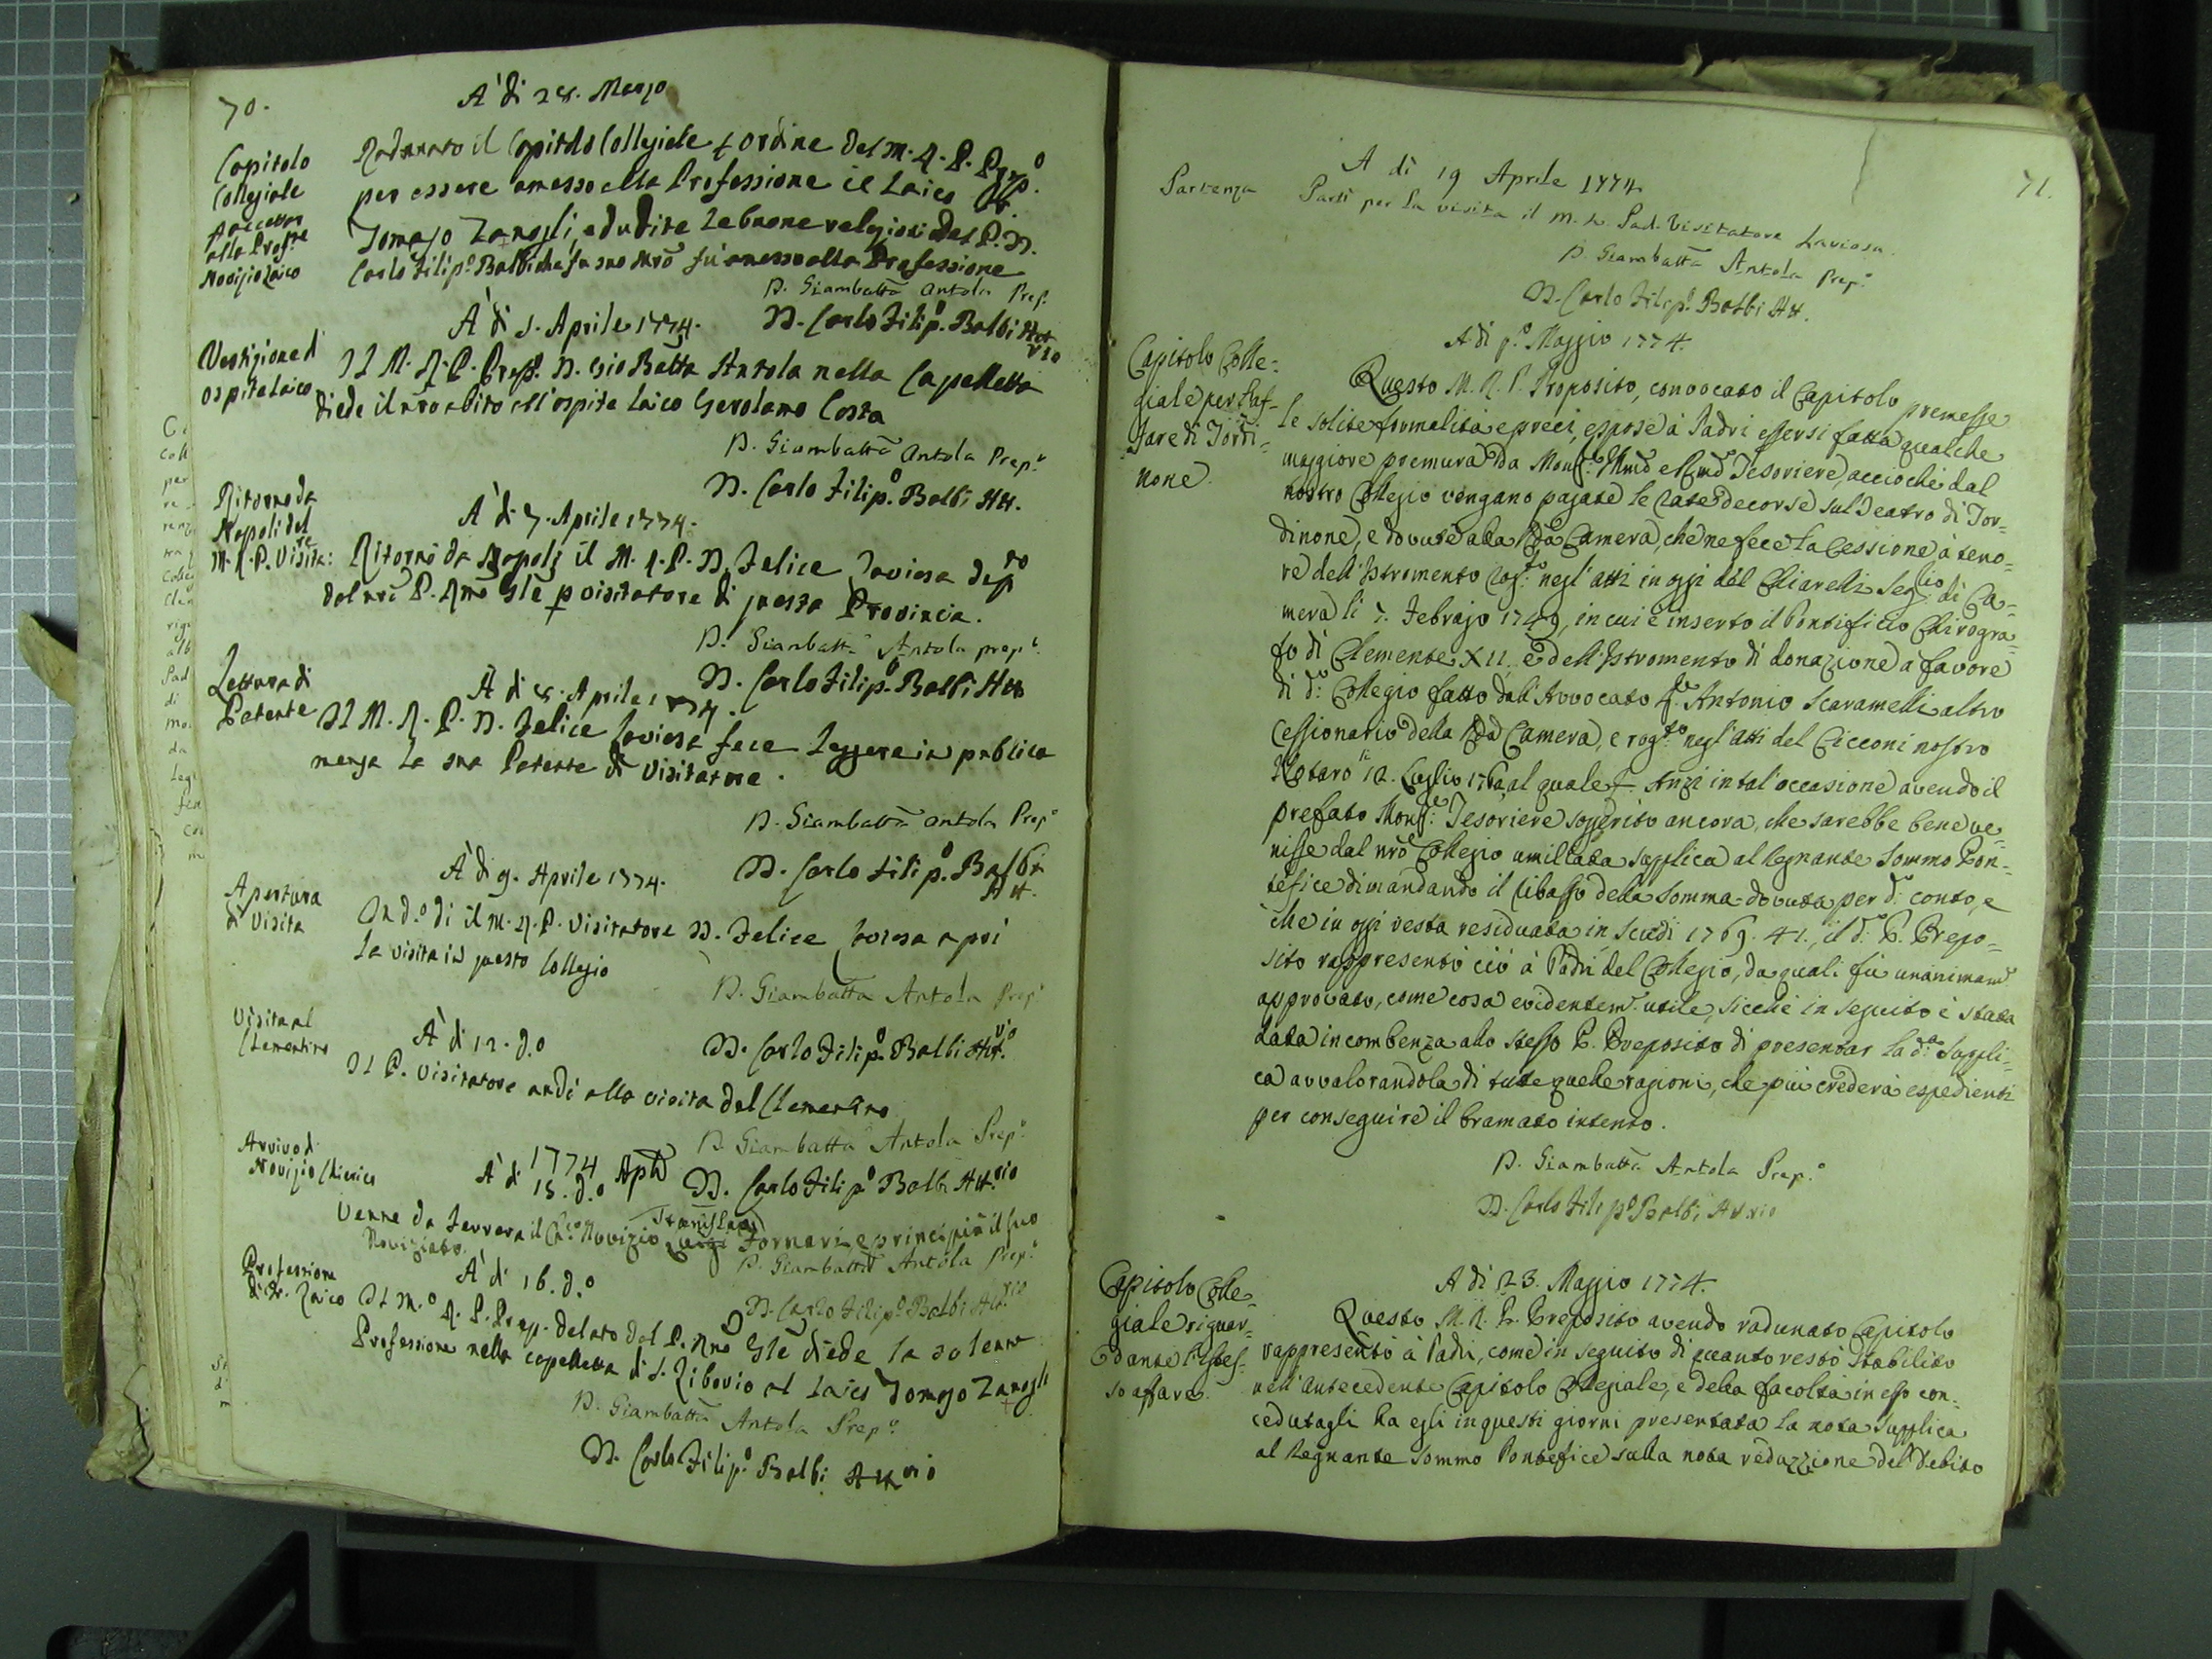 70.
À di 28. Marzo
Capitolo
Collegiale
Accettaz
alla Profne
Novizio Laico
Radunato il Capitolo Collegiale p ordine del M. R. P. Prepo
per essere amesso alla Professione il Laico Fr.
Tomaso Zanogli, ed udite le buone relazioni del P. D.
Carlo Filip.o Balbi che fu suo Mro fu amesso alla Professione
D. Giambatta Antola Prep.o
D. Carlo Filip.o Balbi Att.rio
À di 5. Aprile 1774.
Vestizione d
ospite Laico
Il M. R. P. Prep. D. Gio Batta Antola nella Capelletta
diede il nro abito all'ospite Laico Gerolamo Costa
D. Giambatta Antola Prep.o
D. Carlo Filip.o Balbi Att.
Ritorno da
Napoli del
M. R. P. Visita:re
À di 7. Aprile 1774.
Ritornò da Napoli il M. R. P. D. Felice Laviosa depto
dal nro P. Rmo Gle p visitatore di questa Provincia.
D. Giambatta Antola prep.o
D. Carlo Filip.o Balbi Att
Lettura di
Patente
À di 8. Aprile 1774.
Il M. R. P. D. Felice Laviosa fece leggere in publica
mensa la sua Patente di Visitatore.
D. Giambatta Antola Prep.o
D. Carlo Filip.o Balbi
Att.
À di 9. Aprile 1774.
Apertura
di Visita
In d.o di il M. R. P. Visitatore D. Felice Laviosa aprì
la visita in questo Collegio
D. Giambatta Antola Prep.o
D. Carlo Filip.o Balbi Att.rio
Visita al
Clementino
À di 12. d.o
Il P. Visitatore andò alla visita del Clementino
D. Giambatta Antola Prep.o
D. Carlo Filip.o Balbi Att.rio
Arrivo di
Novizio Chierico
1774
À di 15. d.o Aple
Venne da Ferrara il Ch.co Novizio Luigi Stanislao Fornari, e principiò il suo
Noviziato.
D. Giambatta Antola Prep.o
D. Carlo Filip.o Balbi Att.rio
À di 16. d.o
Professione
di Fr. Laico
Il M.o R. P. Prep. delato dal P. Rmo Gle diede la solenne
Professione nella capelletta di S. Liborio al Laico Tomaso Zanogli
D. Giambatta Antola Prep.o
D. Carlo Filip.o Balbi Att.rio
71.
A dì 19 Aprile 1774
Partenza
Partì per la visita il M. R. Pad. Visitatore Laviosa.
D. Giambatta Antola Prep.o
D. Carlo Filip.o Balbi Att.
A di p.o Maggio 1774.
Capitolo Colle=
giale per l'af=
fare di Tordi=
none.
Questo M. R. P. Proposito, convocato il Capitolo premesse
le solite formalità e preci, espose à Padri essersi fatta qualche
maggiore premura da Monsr. Illmo e Rmo Tesoriere, acciochè dal
nostro Collegio vengano pagate le rate decorse sul Teatro di Tor=
dinone, e dovute alla Rda Camera, che ne fece la Cessione à teno=
re dell'Istromento rogto negl'atti in oggi del Chiarelli Seg.rio di Ca=
mera li 7. Febrajo 1749, in cui è inserto il Pontificio Chirogra=
fo di Clemente XII. e dell'Istromento di donazione a favore
di d.o Collegio fatto dall'Avvocato Antonio Scaramelli altro
Cessionario della Rda Camera, e rog.to negl'Atti del Cicconi nostro
Notaro li 12. Luglio 176 al quale &. Anzi in tal'occasione avendo il
prefato Monsr. Tesoriere soggerito ancora, che sarebbe bene ve=
nisse dal nro Collegio umiliata supplica al Regnante Sommo Pon=
tefice dimandando il ribasso della somma dovuta per d.o conto, e
che in oggi resta residuata in Scudi 1769. 41., il d.o P. Prepo=
sito rappresentò ciò à Padri del Collegio, da quali fù unanimamte
approvato, come cosa evidentem.te utile, sicchè in seguito è stata
data incombenza allo stesso P. Preposito di presentar la d.a Suppli=
ca avvalorandola di tutte quelle ragioni, che più crederà espedienti
per conseguire il bramato intento.
D. Giambatta Antola Prep.o
D. Carlo Filip.o Balbi Att.rio
A dì 23. Maggio 1774.
Capitolo Colle=
giale riguar=
dante l'istes=
so affare.
Questo M. R. P. Preposito avendo radunato Capitolo
rappresentò à Padri, come in seguito di quanto restò stabilito
nell'antecedente Capitolo Collegiale, e della facoltà in esso con=
cedutagli ha egli in questi giorni presentata la nota supplica
al Regnante Sommo Pontefice sulla nota reduzzione del debito